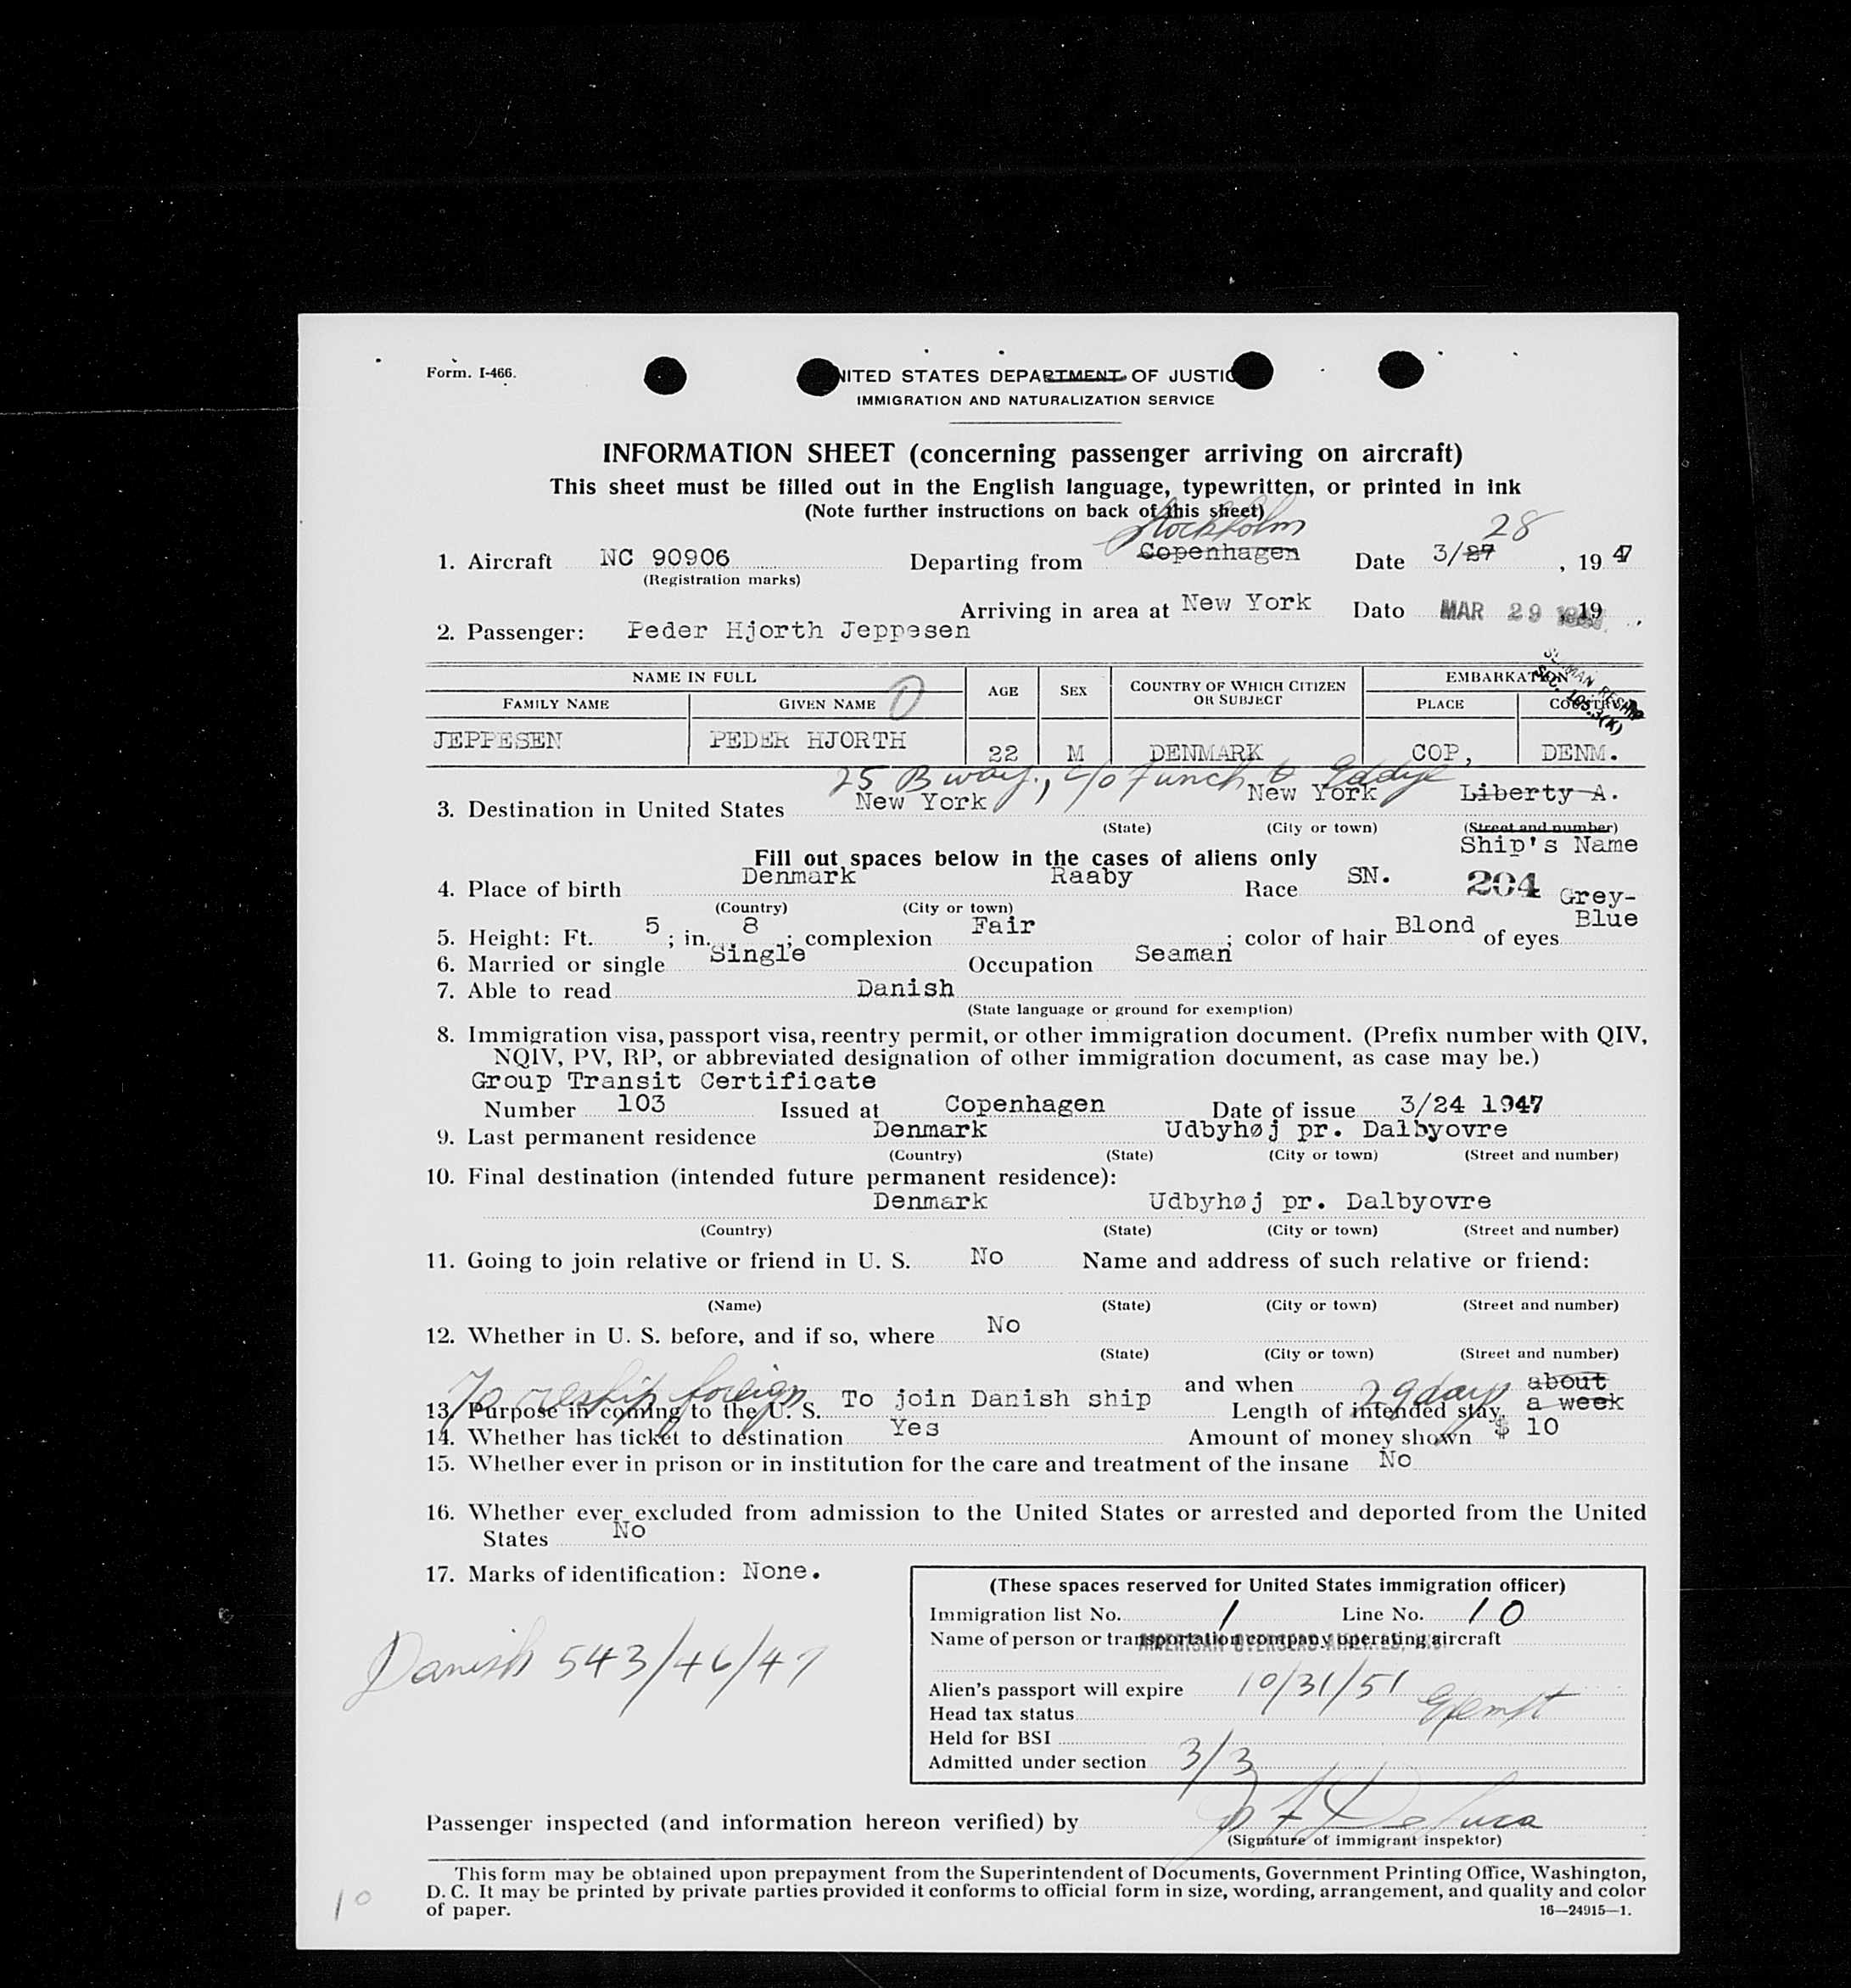 Form. I-466.
NITED STATES DEPARTMENT OF JUSTIC
IMMIGRATION AND NATURALIZATION SERVICE
INFORMATION SHEET (concerning passenger arriving on aircraft)
This sheet must be filled out in the English language, typewritten, or printed in ink
(Note further instructions on back of this sheet)
Stockholm 28
1. Aircraft NC 90906 Departing from Copenhagen Date 3/27, 19 47
(Registration marks)
Arriving in area at New York Dato MAR 29 1947, 19
2. Passenger: Peder Hjorth Jeppesen
SEC. 105.3(K)
NAME IN FULL AGE SEX COUNTRY OF WHICH CITIZEN OR SUBJECT EMBARKATION
FAMILY NAME GIVEN NAME PLACE COUNTRY
JEPPESEN PEDER HJORTH 22 M DENMARK COP, DENM.
25 B way., c/o Funch Eddye
3. Destination in United States New York New York Liberty A.
(State) (City or town) (Street and number)
Ship's Name
Fill out spaces below in the cases of aliens only
4. Place of birth Denmark Raaby Race SN. 204
(Country) (City or town)
5. Height: Ft. 5; in. 8; complexion Fair; color of hair Blond of eyes Grey-Blue
6. Married or single Single Occupation Seaman
7. Able to read Danish
(State language or ground for exemption)
8. Immigration visa, passport visa, reentry permit, or other immigration document. (Prefix number with QIV,
NQIV, PV, RP, or abbreviated designation of other immigration document, as case may be.)
Group Transit Certificate
Number 103 Issued at Copenhagen Date of issue 3/24 1947
9. Last permanent residence Denmark Udbyhøj pr. Dalbyovre
(Country) (State) (City or town) (Street and number)
10. Final destination (intended future permanent residence):
Denmark Udbyhøj pr. Dalbyovre
(Country) (State) (City or town) (Street and number)
11. Going to join relative or friend in U. S. No Name and address of such relative or friend:
(Name) (State) (City or town) (Street and number)
12. Whether in U. S. before, and if so, where No
(State) (City or town) (Street and number)
To reship foreign and when 29 days about
13. Purpose in coming to the U. S. To join Danish ship Length of intended stay a week
14. Whether has ticket to destination Yes Amount of money shown $ 10
15. Whether ever in prison or in institution for the care and treatment of the insane No
16. Whether ever excluded from admission to the United States or arrested and deported from the United
States No
17. Marks of identification: None.
(These spaces reserved for United States immigration officer)
Immigration list No. 1 Line No. 10
Name of person or transportation company operating aircraft
AMERICAN OVERSEAS AIRLINES, INC.
Danish 543/46/47
Alien's passport will expire 10/31/51
Head tax status Exempt
Held for BSI
Admitted under section 3/3
Passenger inspected (and information hereon verified) by
(Signature of immigrant inspektor)
This form may be obtained upon prepayment from the Superintendent of Documents, Government Printing Office, Washington,
D. C. It may be printed by private parties provided it conforms to official form in size, wording, arrangement, and quality and color
of paper.
16—24915—1.
10